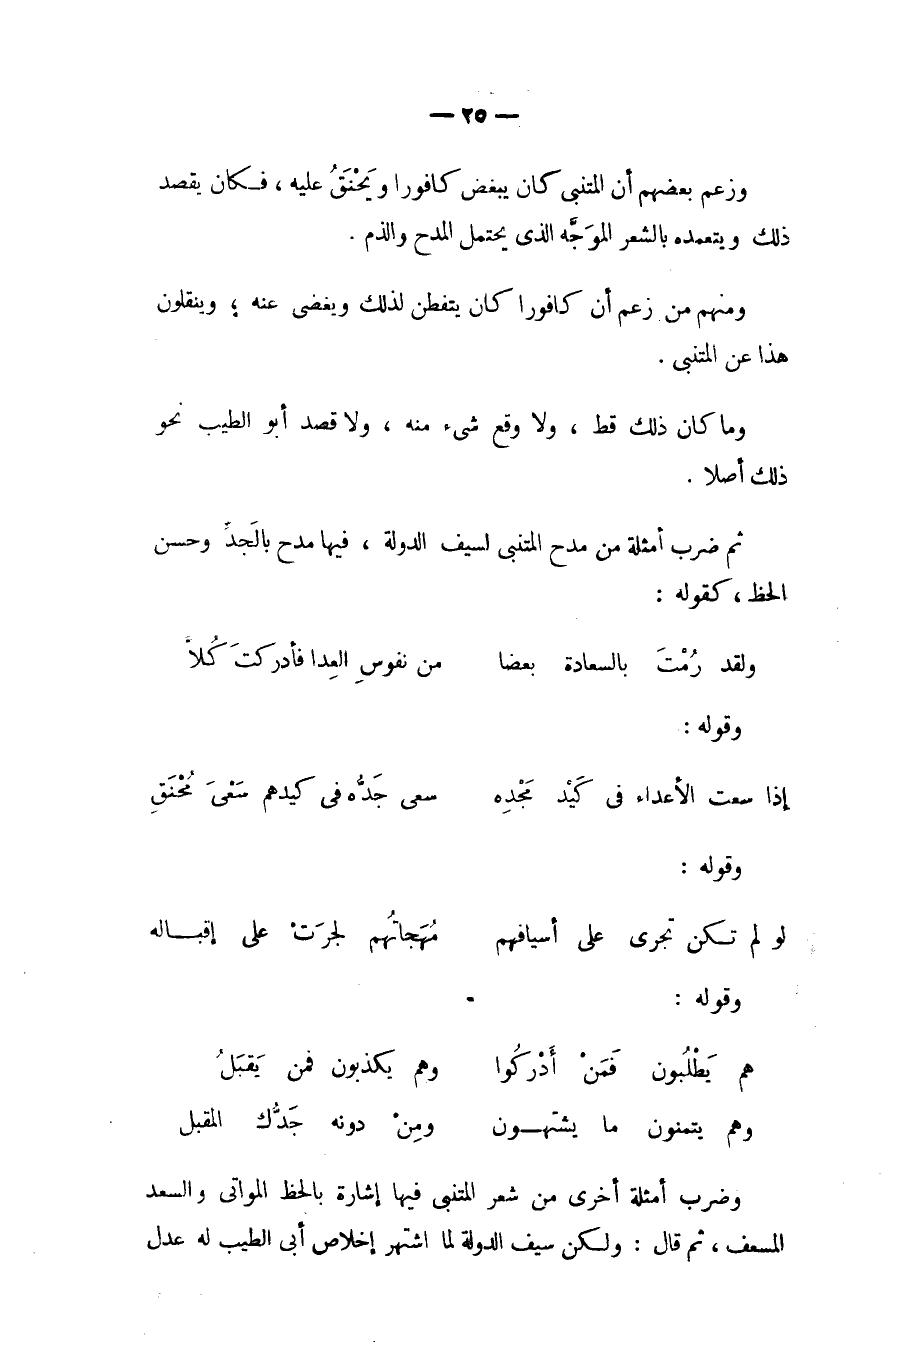 — ٢٥ —
وزعم بعضهم أن المتنبى كان يبغض كافورا ويَحْنَقُ عليه ، فكان يقصد
ذلك ويتعمده بالشعر الموَجَّه الذى يحتمل المدح والذم .
ومنهم من زعم أن كافورا كان يتفطن لذلك ويغضى عنه ؛ وينقلون
هذا عن المتنبى .
وما كان ذلك قط ، ولا وقع شىء منه ، ولا قصد أبو الطيب نحو
ذلك أصلا .
ثم ضرب أمثلة من مدح المتنبى لسيف الدولة ، فيها مدح بالَجدِّ وحسن
الحظ ، كقوله :
ولقد رُمْتَ بالسعادة بعضا من نفوسِ العِدا فأدركتَ كُلاًّ
وقوله :
إذا سعت الأعداء فى كَيْد مَجْدِه سعى جَدُّه فى كيدهم سَعْىَ مُحْنَقِ
وقوله :
لو لم تكن تجرى على أسيافهم مُهَجاتُهم لجرَتْ على إقباله
وقوله :
هم يَطْلُبون فَمَنْ أَدْرَكُوا وهم يكذبون فمن يَقبَلُ
وهم يتمنون ما يشتهون ومِنْ دونه جَدُّك المقبل
وضرب أمثلة أخرى من شعر المتنبى فيها إشارة بالحظ المواتى والسعد
المسعف ، ثم قال : ولكن سيف الدولة لما اشتهر إخلاص أبى الطيب له عدل